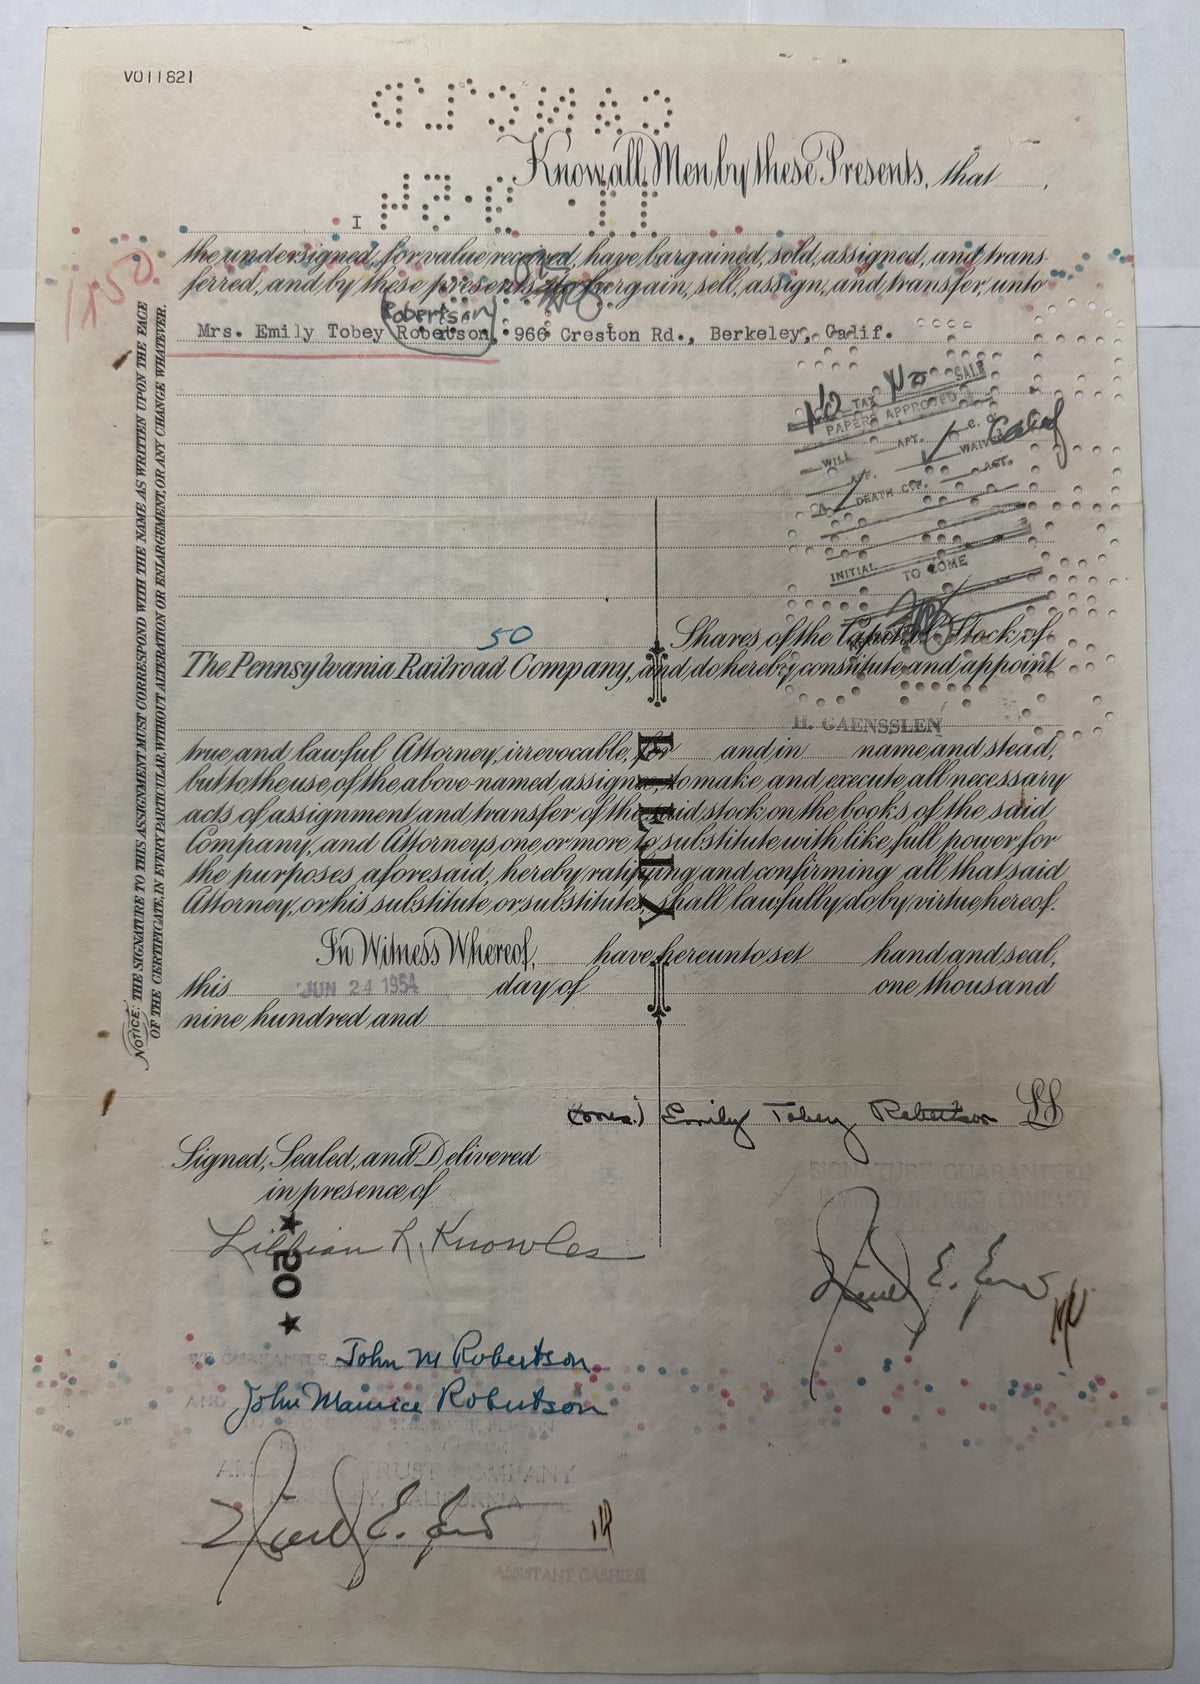 VO11821
CANC'L'D
Know all Men by these Presents, that
11·9·54
I
the undersigned, for value received, have bargained, sold, assigned, and trans-
ferred, and by these presents do bargain, sell, assign, and transfer, unto
1 1 50
Robertson
Mrs. Emily Tobey Robetson, 966 Creston Rd., Berkeley, Calif.
NO TAX NO SALE
PAPERS APPROVED
WILL APT. C. O.
AFF. WAIVER Calif
DEATH CTF. AST.
INITIAL TO COME
50 Shares of the Capital Stock of
The Pennsylvania Railroad Company, and do hereby constitute and appoint
H. GAENSSLEN
true and lawful Attorney, irrevocable, for and in name and stead,
but to the use of the above-named assignee, to make and execute all necessary
acts of assignment and transfer of the said stock on the books of the said
Company, and Attorneys one or more to substitute with like full power for
the purposes aforesaid, hereby ratifying and confirming all that said
Attorney, or his substitute or substitutes, shall lawfully do by virtue hereof.
In Witness Whereof, have hereunto set hand and seal,
this JUN 24 1954 day of one thousand
nine hundred and
FIFTY
NOTICE: THE SIGNATURE TO THIS ASSIGNMENT MUST CORRESPOND WITH THE NAME AS WRITTEN UPON THE FACE
OF THE CERTIFICATE, IN EVERY PARTICULAR, WITHOUT ALTERATION OR ENLARGEMENT, OR ANY CHANGE WHATEVER.
(Mrs.) Emily Tobey Robertson LS
Signed, Sealed, and Delivered
in presence of
SIGNATURE GUARANTEED
Lillian R. Knowles
★ 50 ★
WE GUARANTEE John M Robertson
AND John Maurice Robertson
TRUST COMPANY
CALIFORNIA
ASSISTANT CASHIER